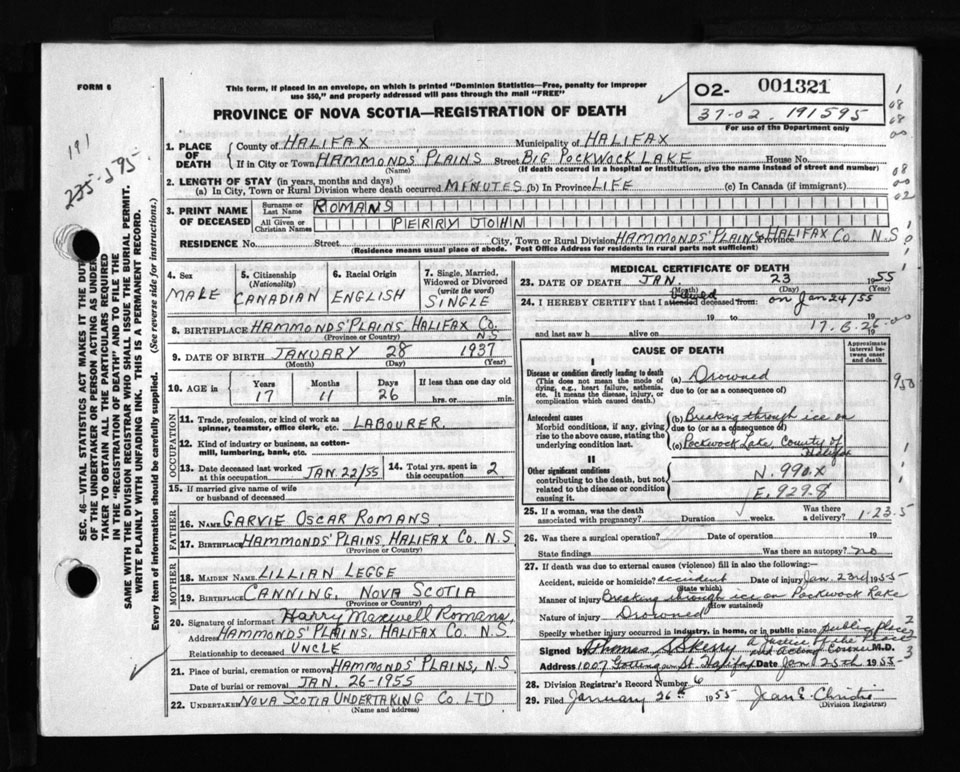 FORM 6
This form, if placed in an envelope, on which is printed "Dominion Statistics—Free, penalty for improper
use $50," and properly addressed will pass through the mail "FREE"
PROVINCE OF NOVA SCOTIA—REGISTRATION OF DEATH
02- 001321
37-02. 191595
For use of the Department only
191
235-595
SEC. 46—VITAL STATISTICS ACT MAKES IT THE DUTY
OF THE UNDERTAKER OR PERSON ACTING AS UNDER-
TAKER TO OBTAIN ALL THE PARTICULARS REQUIRED
IN THE "REGISTRATION OF DEATH" AND TO FILE THE
SAME WITH THE DIVISION REGISTRAR WHO SHALL ISSUE THE BURIAL PERMIT.
WRITE PLAINLY WITH UNFADING INK. THIS IS A PERMANENT RECORD.
Every item of information should be carefully supplied. (See reverse side for instructions.)
1. PLACE OF DEATH
County of HALIFAX Municipality of HALIFAX
If in City or Town HAMMONDS' PLAINS Street BIG POCKWOCK LAKE House No.
(Name) (If death occurred in a hospital or institution, give the name instead of street and number)
2. LENGTH OF STAY (in years, months and days)
(a) In City, Town or Rural Division where death occurred MINUTES (b) In Province LIFE (c) In Canada (if immigrant)
3. PRINT NAME OF DECEASED
Surname or Last Name ROMANS
All Given or Christian Names PERRY JOHN
RESIDENCE No. Street. City, Town or Rural Division HAMMONDS' PLAINS Province HALIFAX CO. N.S
(Residence means usual place of abode. Post Office Address for residents in rural parts not sufficient)
4. Sex MALE
5. Citizenship (Nationality) CANADIAN
6. Racial Origin ENGLISH
7. Single, Married, Widowed or Divorced (write the word) SINGLE
8. BIRTHPLACE HAMMONDS' PLAINS, HALIFAX CO. N.S
(Province or Country)
9. DATE OF BIRTH JANUARY 28 1937
(Month) (Day) (Year)
10. AGE in Years 17 Months 11 Days 26 If less than one day old
hrs. or min.
OCCUPATION
11. Trade, profession, or kind of work as
spinner, teamster, office clerk, etc. LABOURER.
12. Kind of industry or business, as cotton-
mill, lumbering, bank, etc.
13. Date deceased last worked
at this occupation JAN. 22/55
14. Total yrs. spent in
this occupation 2
15. If married give name of wife
or husband of deceased
FATHER
16. NAME GARVIE OSCAR ROMANS
17. BIRTHPLACE HAMMONDS' PLAINS, HALIFAX CO. N.S
(Province or Country)
MOTHER
18. MAIDEN NAME LILLIAN LEGGE
19. BIRTHPLACE CANNING, NOVA SCOTIA
(Province or Country)
20. Signature of informant Harry Maxwell Romans,
Address HAMMONDS' PLAINS, HALIFAX CO. N.S.
Relationship to deceased UNCLE
21. Place of burial, cremation or removal HAMMONDS' PLAINS, N.S
Date of burial or removal JAN. 26-1955
22. UNDERTAKER NOVA SCOTIA UNDERTAKING CO. LTD
(Name and address)
MEDICAL CERTIFICATE OF DEATH
23. DATE OF DEATH JAN 23 1955
(Month) (Day) (Year)
24. I HEREBY CERTIFY that I viewed attended deceased from: on Jan 24/55
19 to 19
17.6.26
and last saw h alive on 19
CAUSE OF DEATH
Approximate interval between onset and death
I
Disease or condition directly leading to death
(This does not mean the mode of dying, e.g., heart failure, asthenia, etc. It means the disease, injury, or complication which caused death.)
(a) Drowned
due to (or as a consequence of)
Antecedent causes
Morbid conditions, if any, giving rise to the above cause, stating the underlying condition last.
(b) Breaking through ice on
due to (or as a consequence of)
(c) Pockwock Lake, County of Halifax
II
Other significant conditions
contributing to the death, but not related to the disease or condition causing it.
N. 990.X
E. 929.8
25. If a woman, was the death
associated with pregnancy? Duration weeks. Was there a delivery? 1-23.5
26. Was there a surgical operation? Date of operation 19
State findings Was there an autopsy? no
27. If death was due to external causes (violence) fill in also the following:
Accident, suicide or homicide? accident Date of injury Jan. 23rd 1955
(State which)
Manner of injury Breaking through ice on Pockwock Lake
(How sustained)
Nature of injury Drowned
Specify whether injury occurred in industry, in home, or in public place public place
Signed by Thomas a Justice of the Peace
and Acting Coroner M.D.
Address 1007 Gottingen St. Halifax Date Jan 25th 1955
28. Division Registrar's Record Number 6
29. Filed January 26th 1955 Jean E. Christie
(Division Registrar)